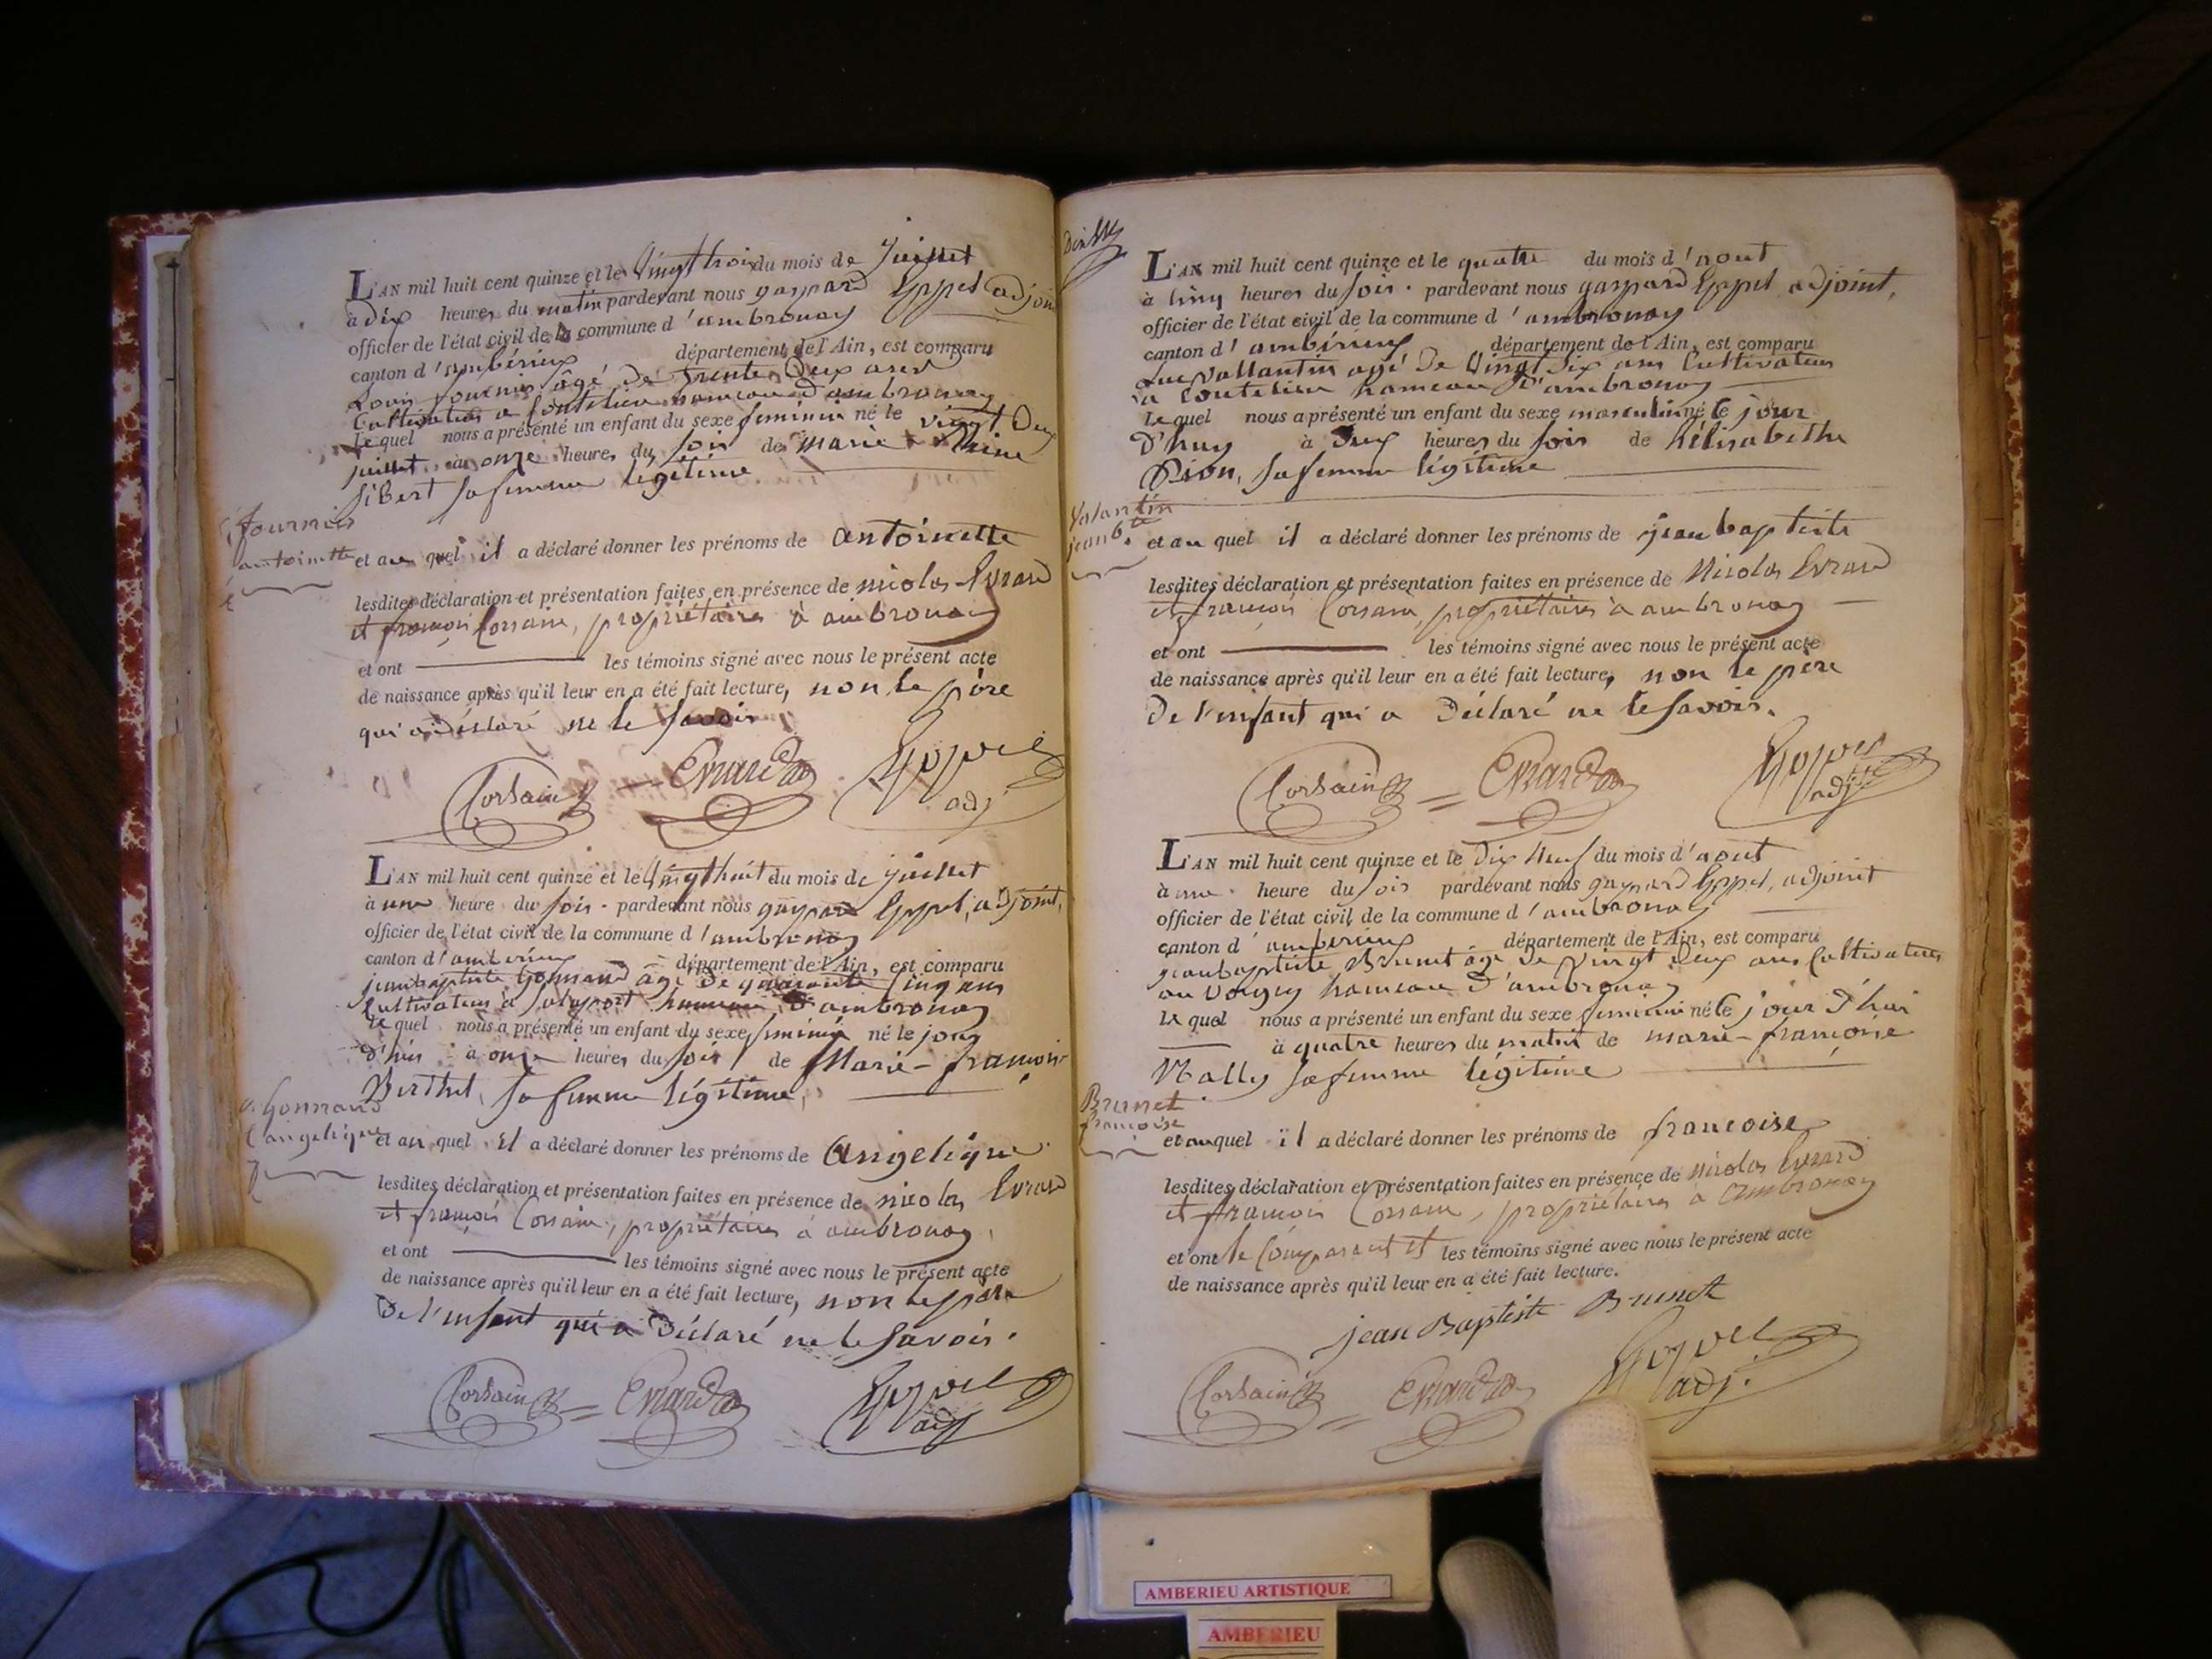 L'AN mil huit cent quinze et le vingt trois du mois de juillet
à dix heures du matin pardevant nous gaspard Goppet adjoint
officier de l'état civil de la commune d'ambronay
canton d'ambérieux département de l'Ain, est comparu
Louis fournier âgé de trente deux ans
Cultivateur a hameau d'ambronay
Lequel nous a présenté un enfant du sexe feminin né le vingt deux
juillet à onze heures du soir de marie
sibert sa femme légitime
fournier
antoinette
et au quel il a déclaré donner les prénoms de antoinette
lesdites déclaration et présentation faites en présence de nicolas Evrard
et françois Corsain, propriétaires à ambronay
et ont les témoins signé avec nous le présent acte
de naissance après qu'il leur en a été fait lecture, non le père
qui a déclaré ne le savoir
Corsain Evrard Goppet
adj.
L'AN mil huit cent quinze et le vingt huit du mois de juillet
à une heure du soir. pardevant nous gaspard Goppet, adjoint,
officier de l'état civil de la commune d'ambronay
canton d'ambérieux département de l'Ain, est comparu
jeanbaptiste gonnand âgé de quarante cinq ans
Cultivateur à hameau d'ambronay
Le quel nous a présenté un enfant du sexe feminin né le jour
d'hier à onze heures du soir de Marie-françoise
Berthet, sa femme légitime,
gonnand
angelique
et au quel il a déclaré donner les prénoms de Angelique
lesdites déclaration et présentation faites en présence de nicolas Evrard
et françois Corsain, propriétaires à ambronay,
et ont les témoins signé avec nous le présent acte
de naissance après qu'il leur en a été fait lecture, non le père
De l'enfant qui a déclaré ne le savoir.
Corsain Evrard Goppet
adj
L'AN mil huit cent quinze et le quatre du mois d'aout
à cinq heures du soir. pardevant nous gaspard Goppet adjoint,
officier de l'état civil de la commune d'ambronay
canton d'ambérieux département de l'Ain, est comparu
Luc vallantin agé de vingt dix ans Cultivateur
a hameau d'ambronay
Le quel nous a présenté un enfant du sexe masculin né le jour
D'huy à deux heures du soir de hélisabethe
Dion, sa femme légitime
Valantin
jean bte
et au quel il a déclaré donner les prénoms de jean baptiste
lesdites déclaration et présentation faites en présence de Nicolas Evrard
et françois Corsain, propriétaires à ambronay
et ont les témoins signé avec nous le présent acte
de naissance après qu'il leur en a été fait lecture, non le père
De l'enfant qui a Déclaré ne le savoir.
Corsain Evrard Goppet
adj.
L'AN mil huit cent quinze et le dix neuf du mois d'aout
à une heure du soir pardevant nous gaspard Goppet, adjoint
officier de l'état civil de la commune d'ambronay
canton d'ambérieux département de l'Ain, est comparu
jeanbaptiste Brunet âgé de vingt deux ans Cultivateur
au hameau d'ambronay
Le quel nous a présenté un enfant du sexe feminin né le jour d'hui
à quatre heures du matin de marie-françoise
sa femme légitime
Brunet
françoise
et auquel il a déclaré donner les prénoms de françoise
lesdites déclaration et présentation faites en présence de nicolas Evrard
et françois Corsain, propriétaires à ambronay
et ont le Comparant et les témoins signé avec nous le présent acte
de naissance après qu'il leur en a été fait lecture.
jean Baptiste Brunet
Corsain Evrard Goppet
adj.
AMBERIEU ARTISTIQUE
AMBERIEU